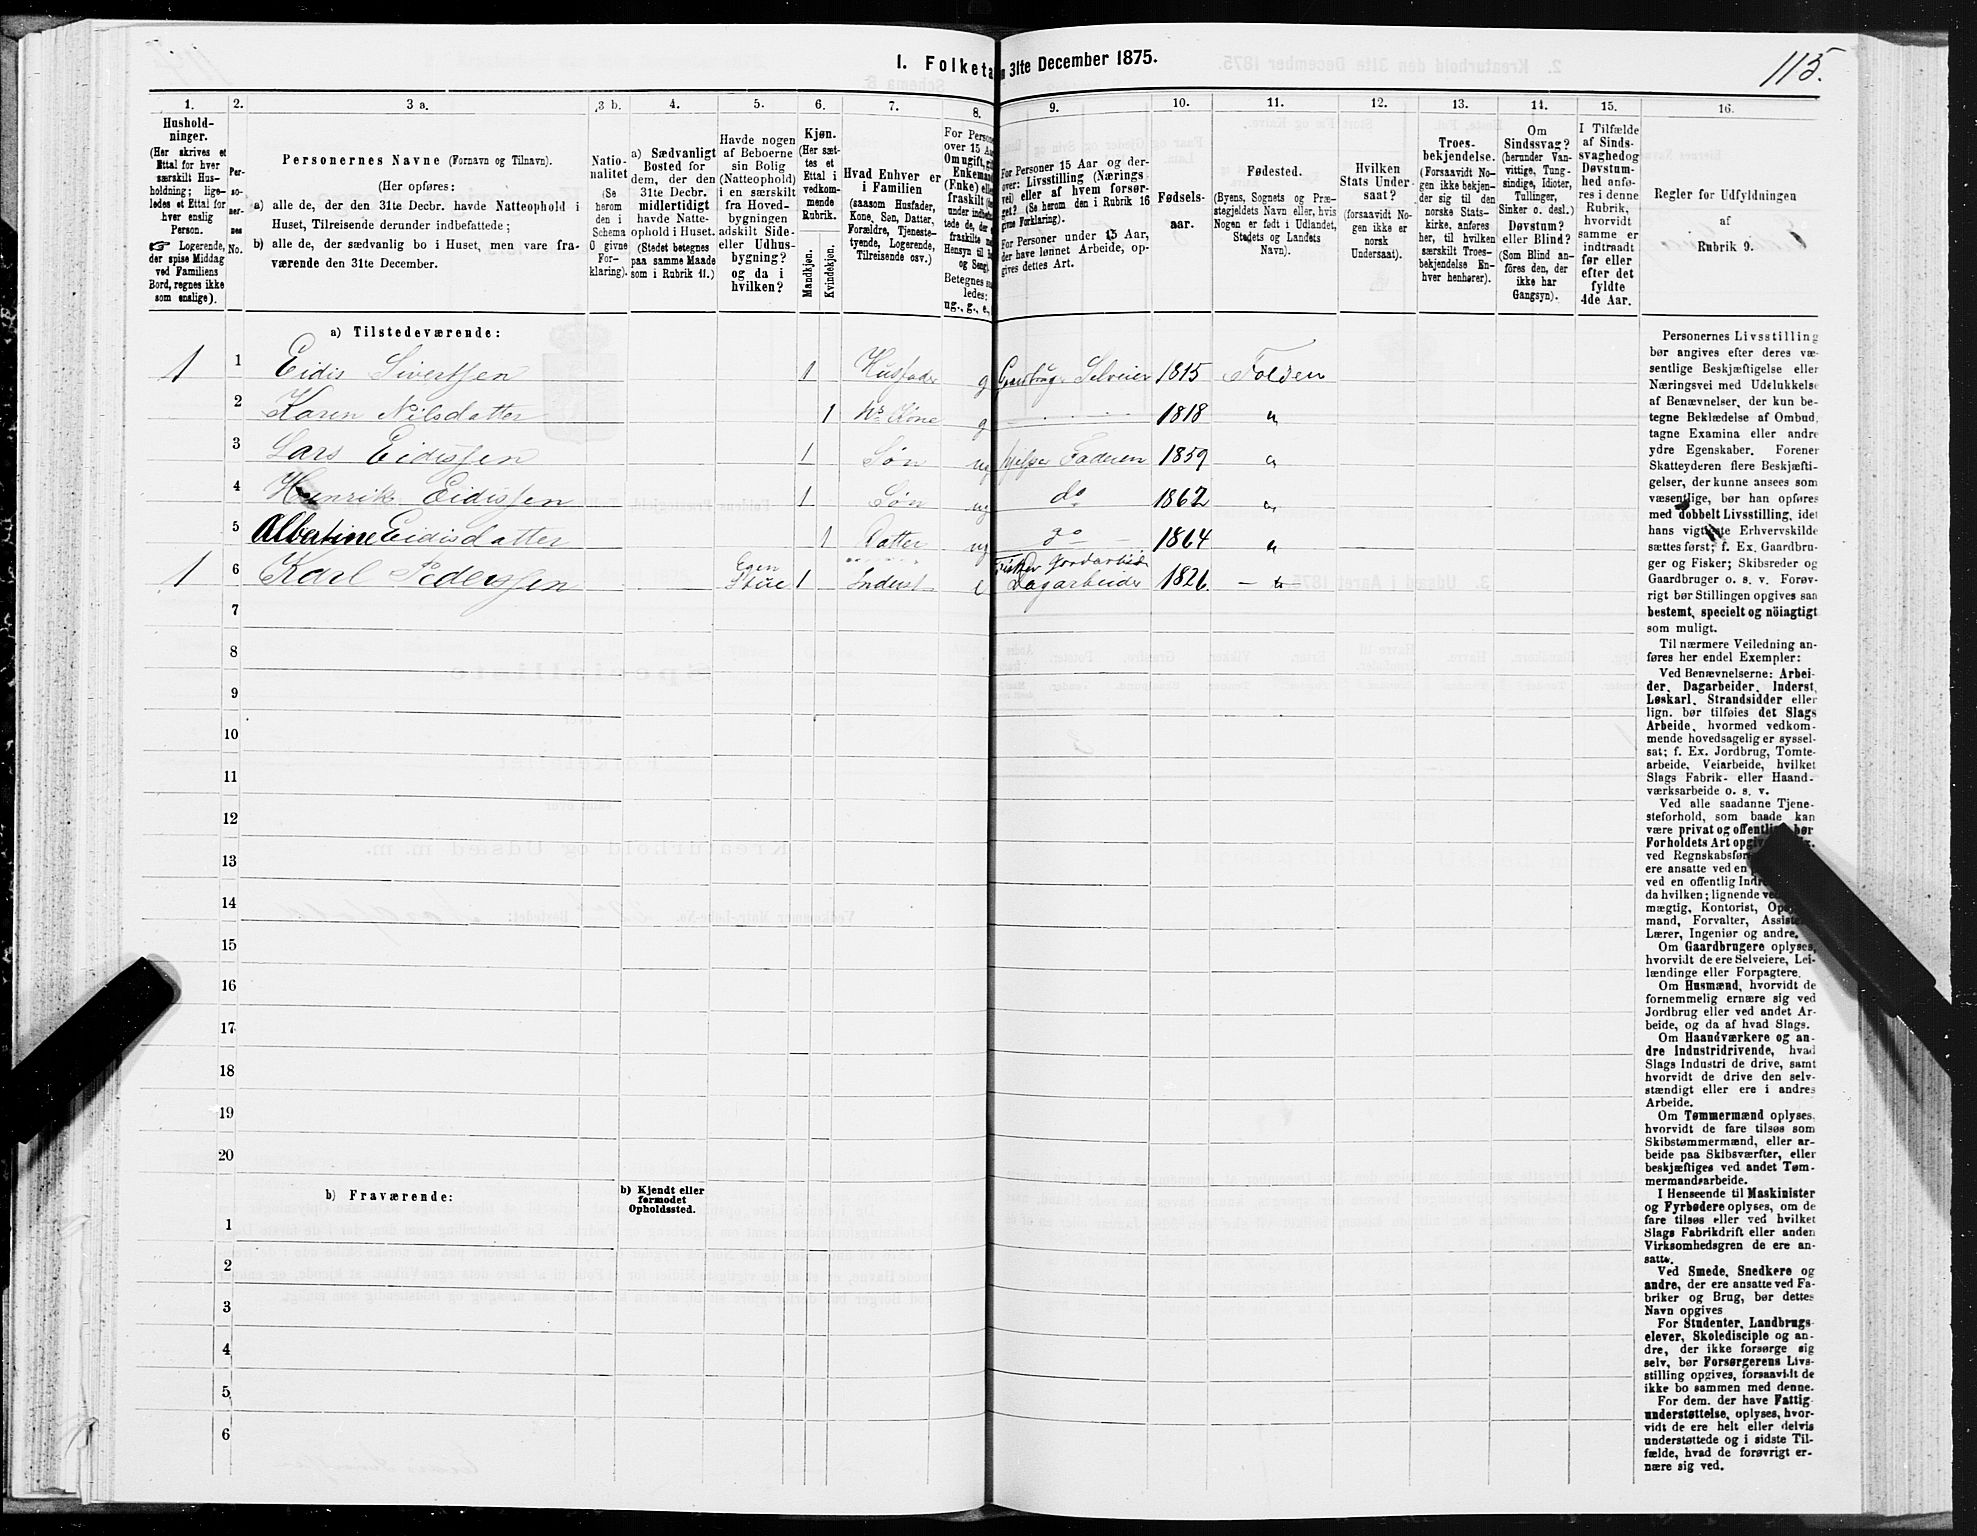 115.
1. Folketæ
n 31te December 1875.
1.
2.
3 a.
3 b.
4.
5.
6.
7.
8.
9.
10.
11.
12.
13.
14.
15.
16.
Hushold-
ninger.
(Her skrives et
Ettal for hver
særskilt Hus-
holdning; lige-
ledes et Ettal for
hver enslig
Person.
☞ Logerende,
der spise Middag
ved Familiens
Bord, regnes ikke
som enslige).
Per-
so-
ner-
nes
No.
Personernes Navne (Fornavn og Tilnavn).
(Her opføres:
a) alle de, der den 31te Decbr. havde Natteophold i
Huset, Tilreisende derunder indbefattede;
b) alle de, der sædvanlig bo i Huset, men vare fra-
værende den 31te December.
Natio-
nalitet
(Se
herom
den i
Schema
O givne
For-
klaring).
a) Sædvanligt
Bosted for
dem, der den
31te Decbr.
midlertidigt
havde Natte-
ophold i Huset.
(Stedet betegnes
paa samme Maade
som i Rubrik 11.)
Havde nogen
af Beboerne
sin Bolig
(Natteophold)
i en særskilt
fra Hoved-
bygningen
adskilt Side-
eller Udhus-
bygning?
og da i
hvilken?
Kjøn.
(Her sæt-
tes et
Ettal i
vedkom-
mende
Rubrik.
Mandkjøn.
Kvindekjøn.
Hvad Enhver er
i Familien
(saasom Husfader,
Kone, Søn, Datter,
Forældre, Tjeneste-
tyende, Logerende,
Tilreisende osv.)
For Person
over 15 Aa
Om ugift, gi
Enkemand
(Enke) elle
fraskilt
under indbe
tede de, der
fraskilte
Hensyn til
og Seng).
Betegnes s
ledes:
ug., g., e.,
For Personer 15 Aar og der-
over: Livsstilling (Nærings-
vei) eller af hvem forsør-
get? (Se herom den i Rubrik 16
givne Forklaring).
For Personer under 15 Aar,
der have lønnet Arbeide, op-
gives dettes Art.
Fødsels-
aar.
Fødested.
(Byens, Sognets og Præ-
stegjeldets Navn eller, hvis
Nogen er født i Udlandet,
Stedets og Landets
Navn).
Hvilken
Stats Under-
saat?
(forsaavidt No-
gen ikke er
norsk
Undersaat).
Troes-
bekjendelse.
(Forsaavidt No-
gen ikke bekjen-
der sig til den
norske Stats-
kirke, anføres
her, til hvilken
særskilt Troes-
bekjendelse En-
hver henhører).
Om
Sindssvag?
(herunder Van-
vittige, Tung-
sindige, Idioter,
Tullinger,
Sinker o. desl.)
Døvstum?
eller Blind?
(Som Blind an-
føres den, der
ikke har
Gangsyn).
I Tilfælde
af Sinds-
svaghed og
Døvstum-
hed anfø-
res i denne
Rubrik,
hvorvidt
samme er
indtraadt
før eller
efter det
fyldte
4de Aar.
Regler for Udfyldningen
af
Rubrik 9.
a) Tilstedeværende:
1 1 Eidis Sivertsen 1 Husfader g Gaardbruger Selveier 1815 Folden
2 Karen Nilsdatter 1 Hs Kone g 1818 "
3 Lars Eidissen 1 Søn ug hjelper Faderen 1859 "
4 Henrik Eidissen 1 Søn ug do 1862 "
5 Albertine Eidisdatter 1 Datter ug do 1864 "
Egen Fisker Jordarbeid
1 6 Karl Pedersen Stue 1 Inderst e Dagarbeider 1826. - " -
7
8
9
10
11
12
13
14
15
16
17
18
19
20
b) Fraværende:
b) Kjendt eller
formodet
Opholdssted.
1
2
3
4
5
6
Personernes Livsstilling
bør angives efter deres væ-
sentlige Beskjæftigelse eller
Næringsvei med Udelukkelse
af Benævnelser, der kun be-
tegne Beklædelse af Ombud,
tagne Examina eller andre
ydre Egenskaber. Forener
Skatteyderen flere Beskjæfti-
gelser, der kunne ansees som
væsentlige, bør han opføres
med dobbelt Livsstilling, idet
hans vigtigste Erhvervskilde
sættes først; f. Ex. Gaardbru-
ger og Fisker; Skibsreder og
Gaardbruger o. s. v. Forøv-
rigt bør Stillingen opgives saa
bestemt, specielt og nöiagtigt
som muligt.
Til nærmere Veiledning an-
føres her endel Exempler:
Ved Benævnelserne: Arbei-
der, Dagarbeider, Inderst,
Løskarl, Strandsidder eller
lign. bør tilføies det Slags
Arbeide, hvormed vedkom-
mende hovedsagelig er syssel-
sat; f. Ex. Jordbrug, Tomte-
arbeide, Veiarbeide, hvilket
Slags Fabrik- eller Haand-
værksarbeide o. s. v.
Ved alle saadanne Tjene-
steforhold, som baade kan
være privat og offentlig, bør
Forholdets Art opgiv
ved Regnskabsfør
ere ansatte ved en
ved en offentlig Ind
da hvilken; lignende ve
mægtig, Kontorist, Op
mand, Forvalter, Assiste
Lærer, Ingeniør og andre.
Om Gaardbrugere oplyses,
hvorvidt de ere Selveiere, Lei-
lændinge eller Forpagtere.
Om Husmænd, hvorvidt de
fornemmelig ernære sig ved
Jordbrug eller ved andet Ar-
beide, og da af hvad Slags.
Om Haandværkere og an-
dre Industridrivende, hvad
Slags Industri de drive, samt
hvorvidt de drive den selv-
stændigt eller ere i andres
Arbeide.
Om Tømmermænd oplyses,
hvorvidt de fare tilsøs som
Skibstømmermænd, eller ar-
beide paa Skibsværfter, eller
beskjæftiges ved andet Tøm-
mermandsarbeide.
I Henseende til Maskinister
og Fyrbødere oplyses, om de
fare tilsøs eller ved hvilket
Slags Fabrikdrift eller anden
Virksomhedsgren de ere an-
satte.
Ved Smede, Snedkere og
andre, der ere ansatte ved Fa-
briker og Brug, bør dettes
Navn opgives
For Studenter, Landbrugs-
elever, Skoledisciple og an-
dre, der ikke forsørge sig
selv, bør Forsørgerens Livs-
stilling opgives, forsaavidt de
ikke bo sammen med denne.
For dem, der have Fattig-
understøttelse, oplyses, hvor-
vidt de ere helt eller delvis
understøttede og i sidste Til-
fælde, hvad de forøvrigt er-
nære sig ved.